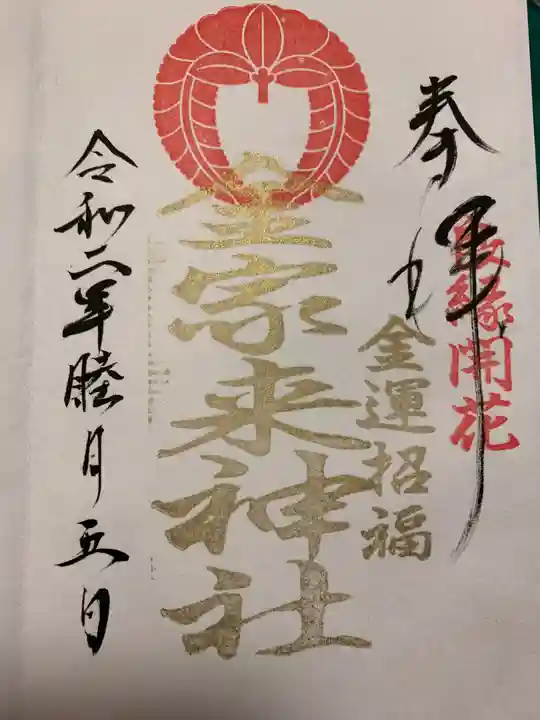 奉拝
良縁開花
金運招福
金家来神社
令和二年睦月五日